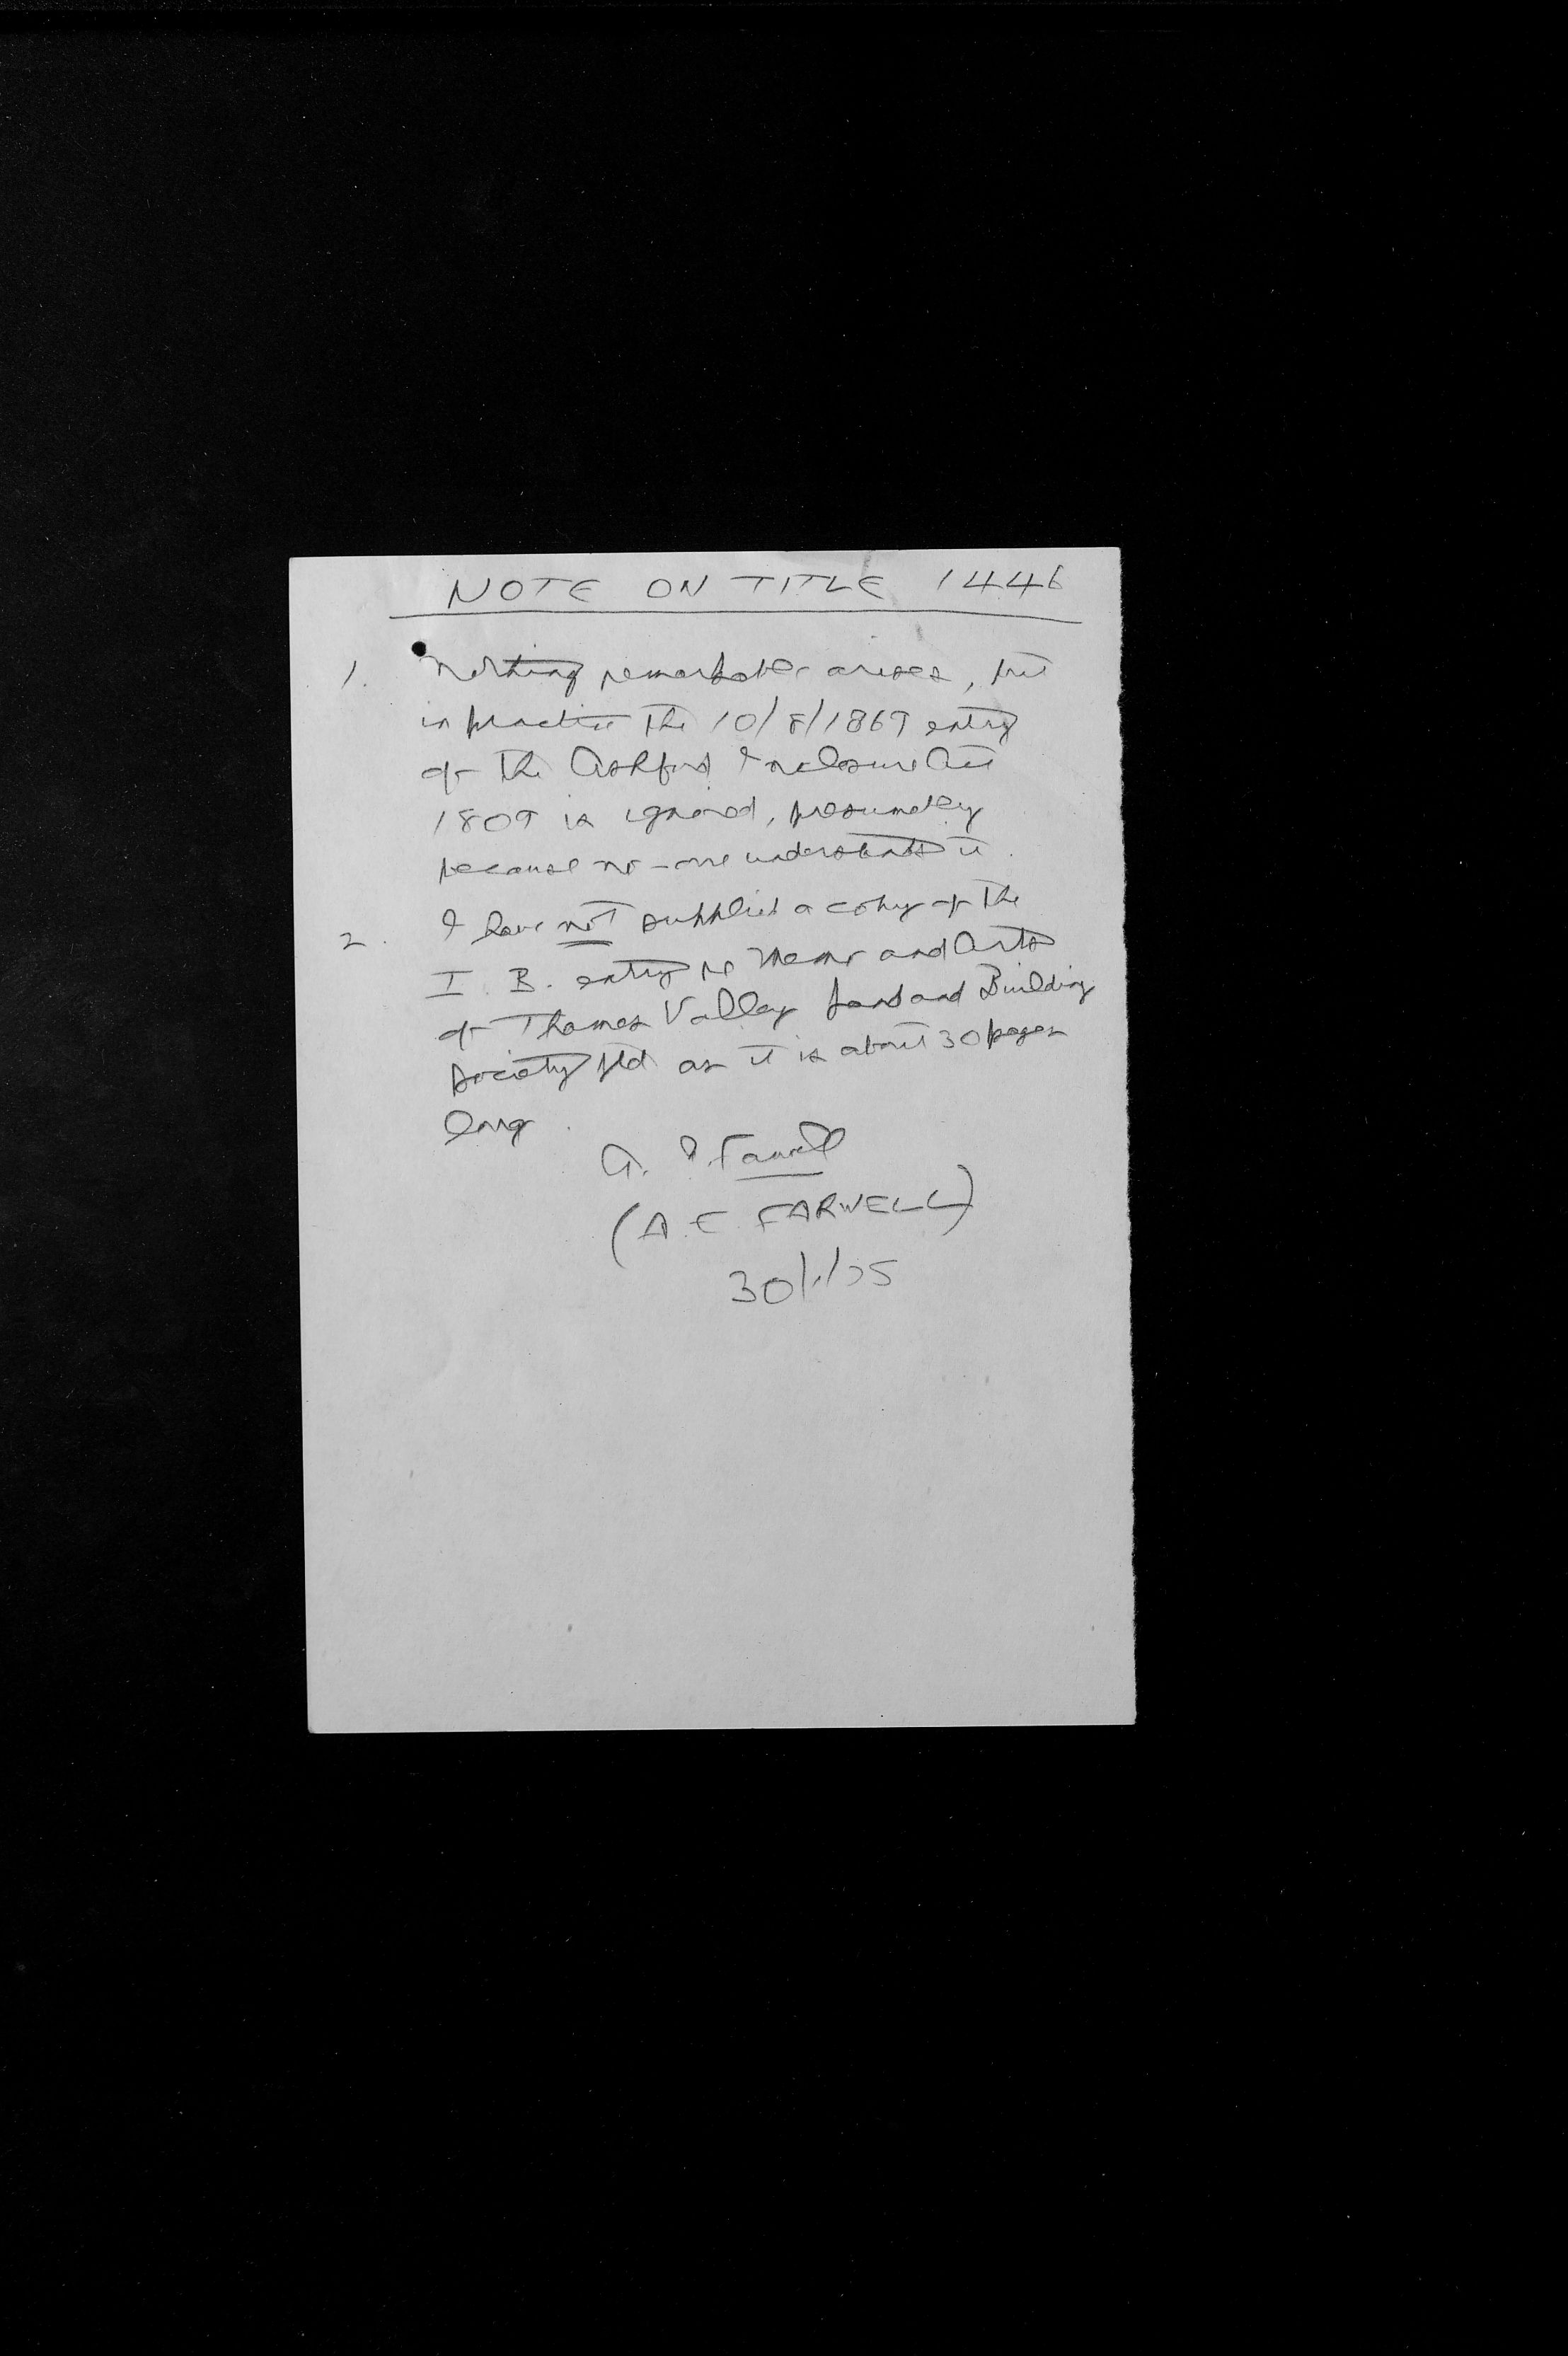 NOTE ON TITLE 1446
1. Nothing remarkable arises, but
in practice the 10/8/1869 entry
of the Ashford Inclosure Act
1809 is ignored, presumably
because no-one understands it.
2. I have not supplied a copy of the
I.B. entry re Memo and Arts
of Thames Valley Land and Building
Society Ltd as it is about 30 pages
long.
A. E. Farwell
(A. E. FARWELL)